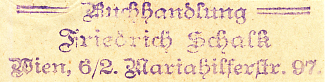 Buchhandlung
Friedrich Schalk
Wien, 6/2. Mariahilferstr. 97